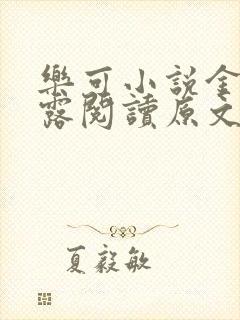 樂可小說金
露閱讀原文
夏毅敏